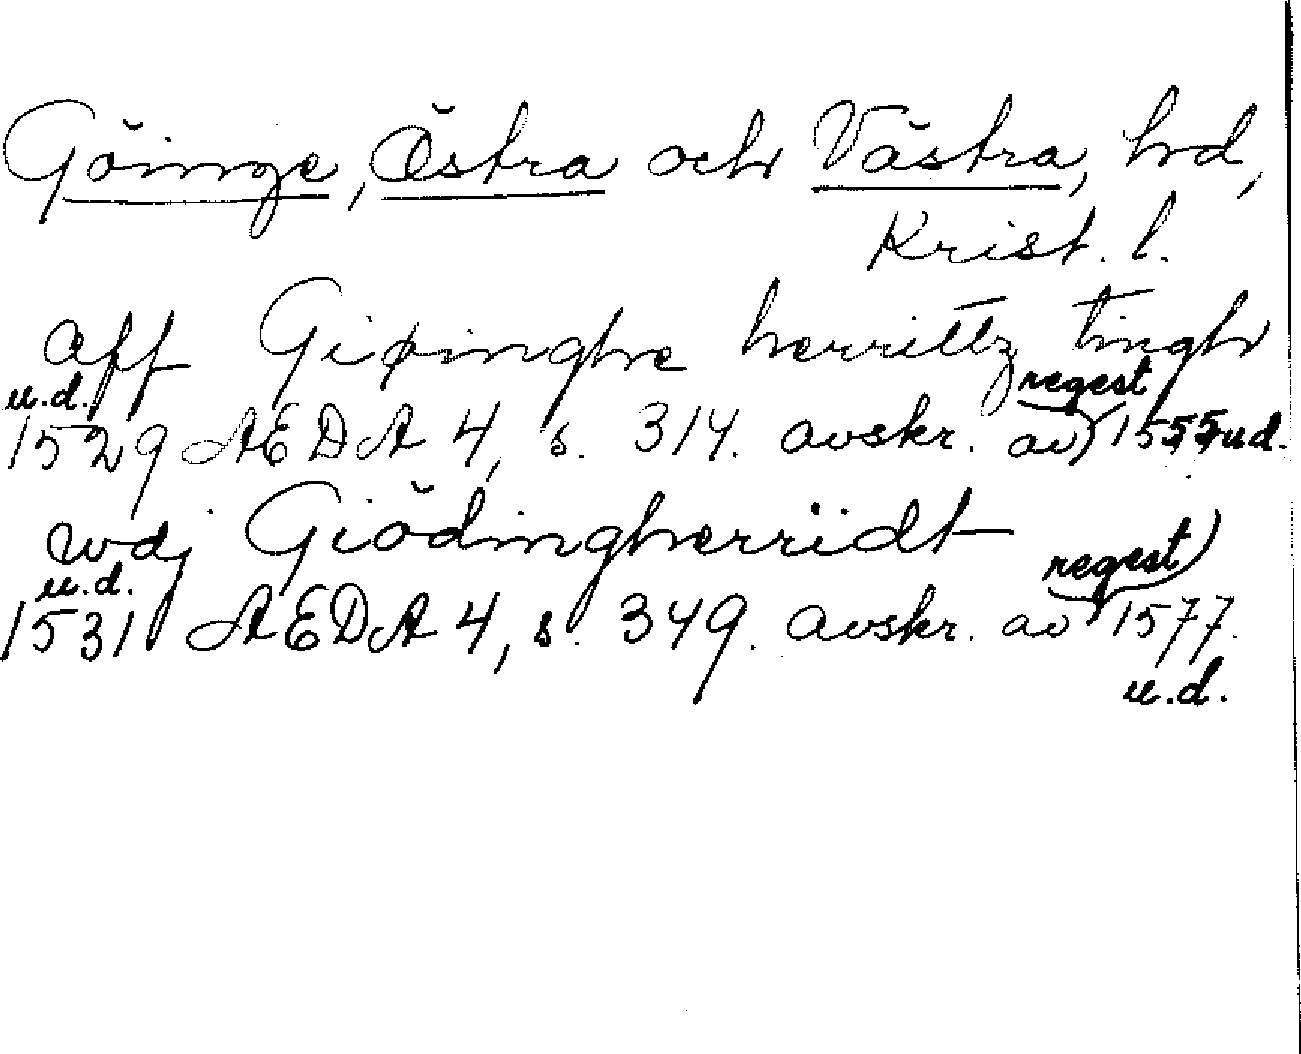 Göinge, Östra och Västra, hd,
Krist. l.
aff Giøinghe herrittz tingh
u.d. regest
1529 AEDA 4, s. 314. avskr. av 1555 u.d.
wdj Giödingherridt
u.d. regest
1531 AEDA 4, s. 349. avskr. av 1577.
u.d.